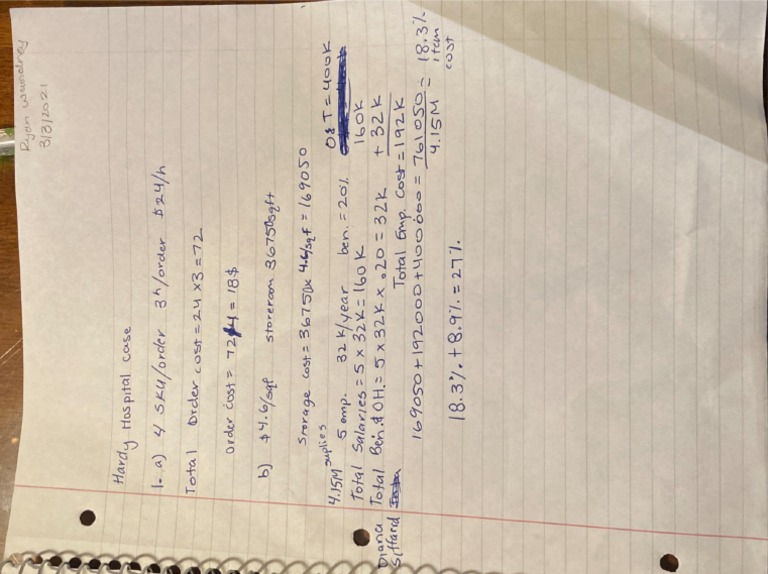 Ryan
3/3/2021
Hardy Hospital case
1- a) 4 SKU/order 3h/order $24/h
Total Order cost = 24 x 3 = 72
Order cost = 72/4 = 18$
b) $4.6/sqf storeroom 36750sqft
Storage cost = 36750x 4.6/sqf = 169050
4.15M suplies
5 emp. 32k/year ben. = 20% O&T = 400K
Total Salaries = 5 x 32K = 160K 160K
Diana Total Ben. & OH. = 5 x 32K x .20 = 32K + 32K
Siffard Total Emp. Cost = 192K
169050 + 192000 + 400000 = 761050 = 18.3%
4.15M item
cost
18.3% + 8.9% = 27%